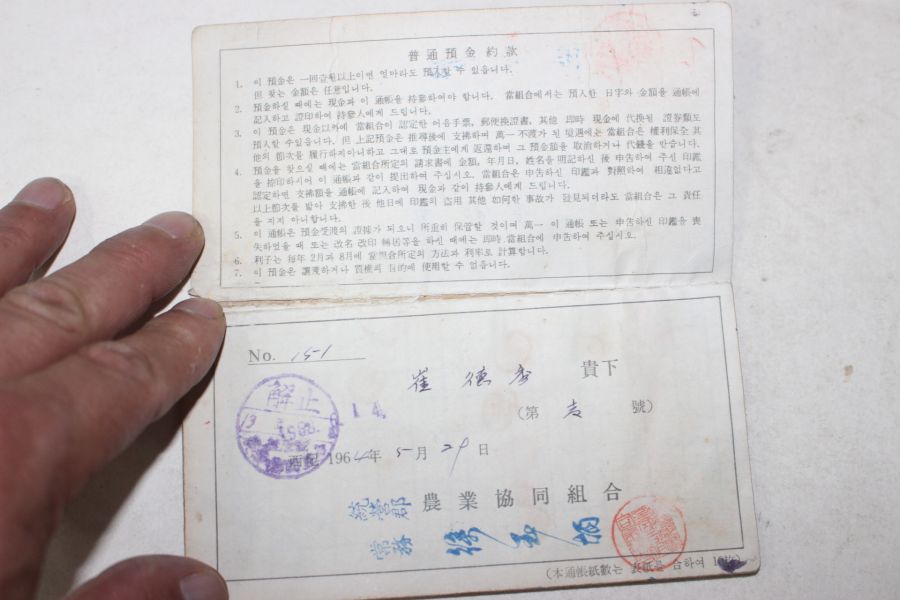 普通預金約款
1. 이 預金은 一回壹원以上이면 얼마라도 預入할 수 있읍니다.
단 찾는 金額은 任意입니다.
2. 預金하실 때에는 現金과 이 通帳을 持參하여야 합니다. 當組合에서는 預入한 日字와 金額을 通帳에
記入하고 證印하여 持參人에게 드립니다.
3. 이 預金은 現金以外에 當組合이 認定한 어음手票, 郵便換證書, 其他 即時 現金에 代換될 證券類도
預入할 수있읍니다. 但 上記預金은 推尋後에 支拂하며 萬一 不渡가 된 境遇에는 當組合은 權利保全 其
他의 節次를 履行하지아니하고 그대로 預金主에게 返還하며 그 預金額을 取消하거나 代錢을 받습니다.
4. 預金을 찾으실 때에는 當組合所定의 請求書에 金額, 年月日, 姓名을 明記하신 後 申告하여 주신 印鑑
을 捺印하시어 이 通帳과 같이 提出하여 주십시오. 當組合은 申告하신 印鑑과 對照하여 相違없다고
認定하면 支拂額을 通帳에 記入하여 現金과 같이 持參人에게 드립니다.
以上節次를 밟아 支拂한 後 他日에 印鑑의 盜用 其他 如何한 事故가 發見되더라도 當組合은 그 責任
을 지지 아니합니다.
5. 이 通帳은 預金受渡의 證據가 되오니 所重히 保管할 것이며 萬一 이 通帳 또는 申告하신 印鑑을 喪
失하였을 때 또는 改名 改印 轉居等을 하신 때에는 即時 當組合에 申告하여 주십시오.
6. 利子는 每年 2月과 8月에 當組合所定의 方法과 利率로 計算합니다.
7. 이 預金은 讓渡하거나 質權의 目的에 使用할 수 없읍니다.
No. 15-1
崔 德 貴下
(第 號)
解止
14.
西紀 1964年 5月 29日
統營郡 農業協同組合
常務 徐
(本通帳紙數는 表紙를 合하여